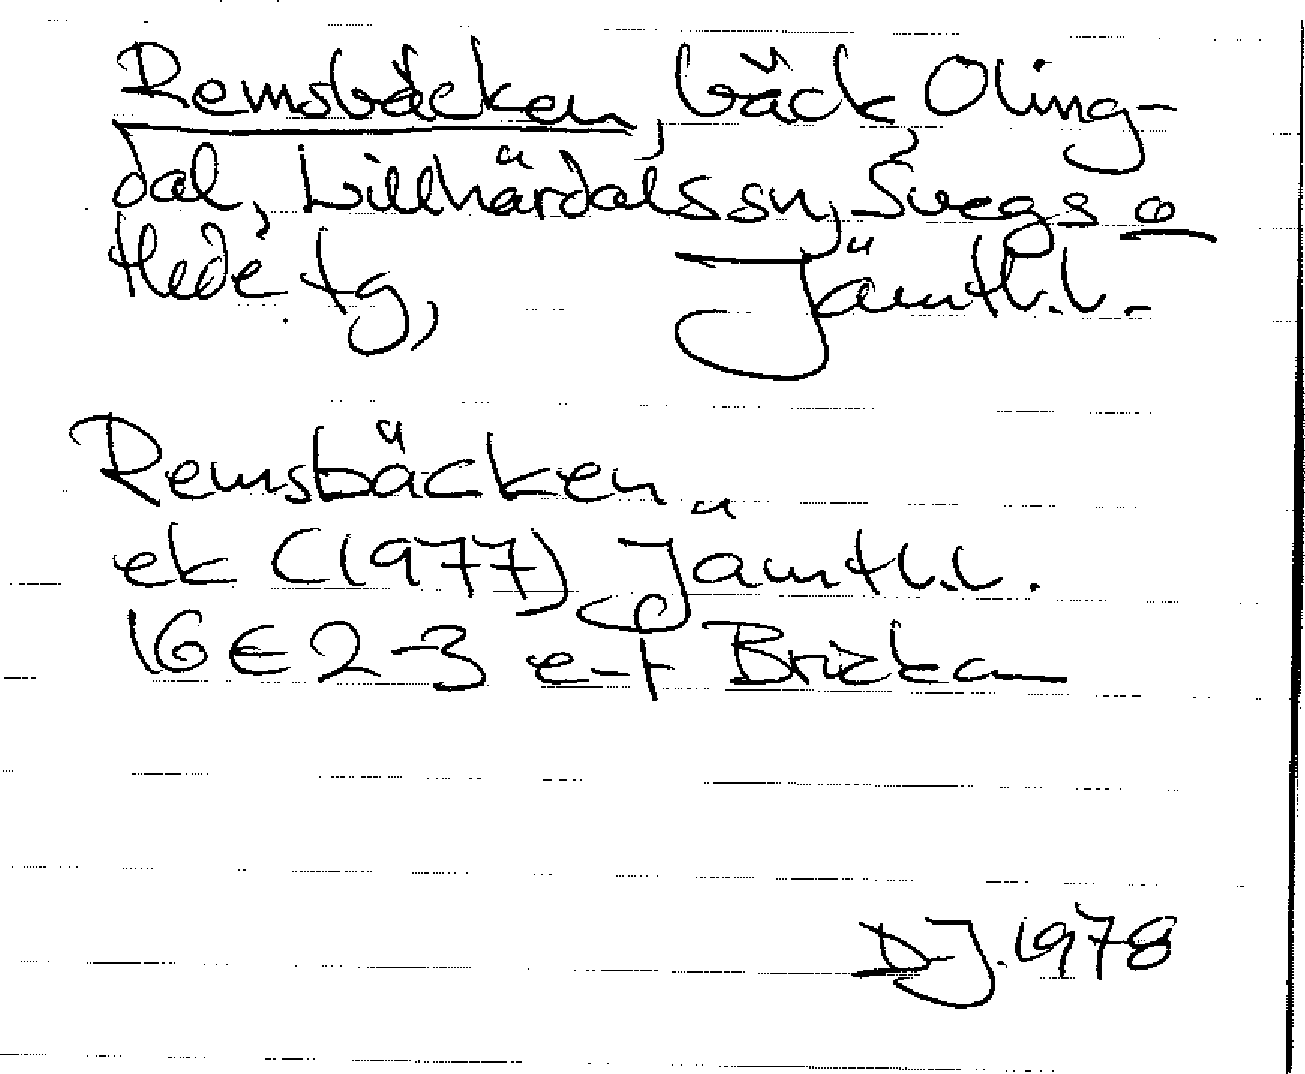 Remsbäcken, bäck Oling-
dal, Lillhärdals sn, Svegs o
Hede tg, Jämtl.l.
Remsbäcken
ek (1977) Jämtl.l.
16E 2-3 e-f Bricka
DJ. 1978